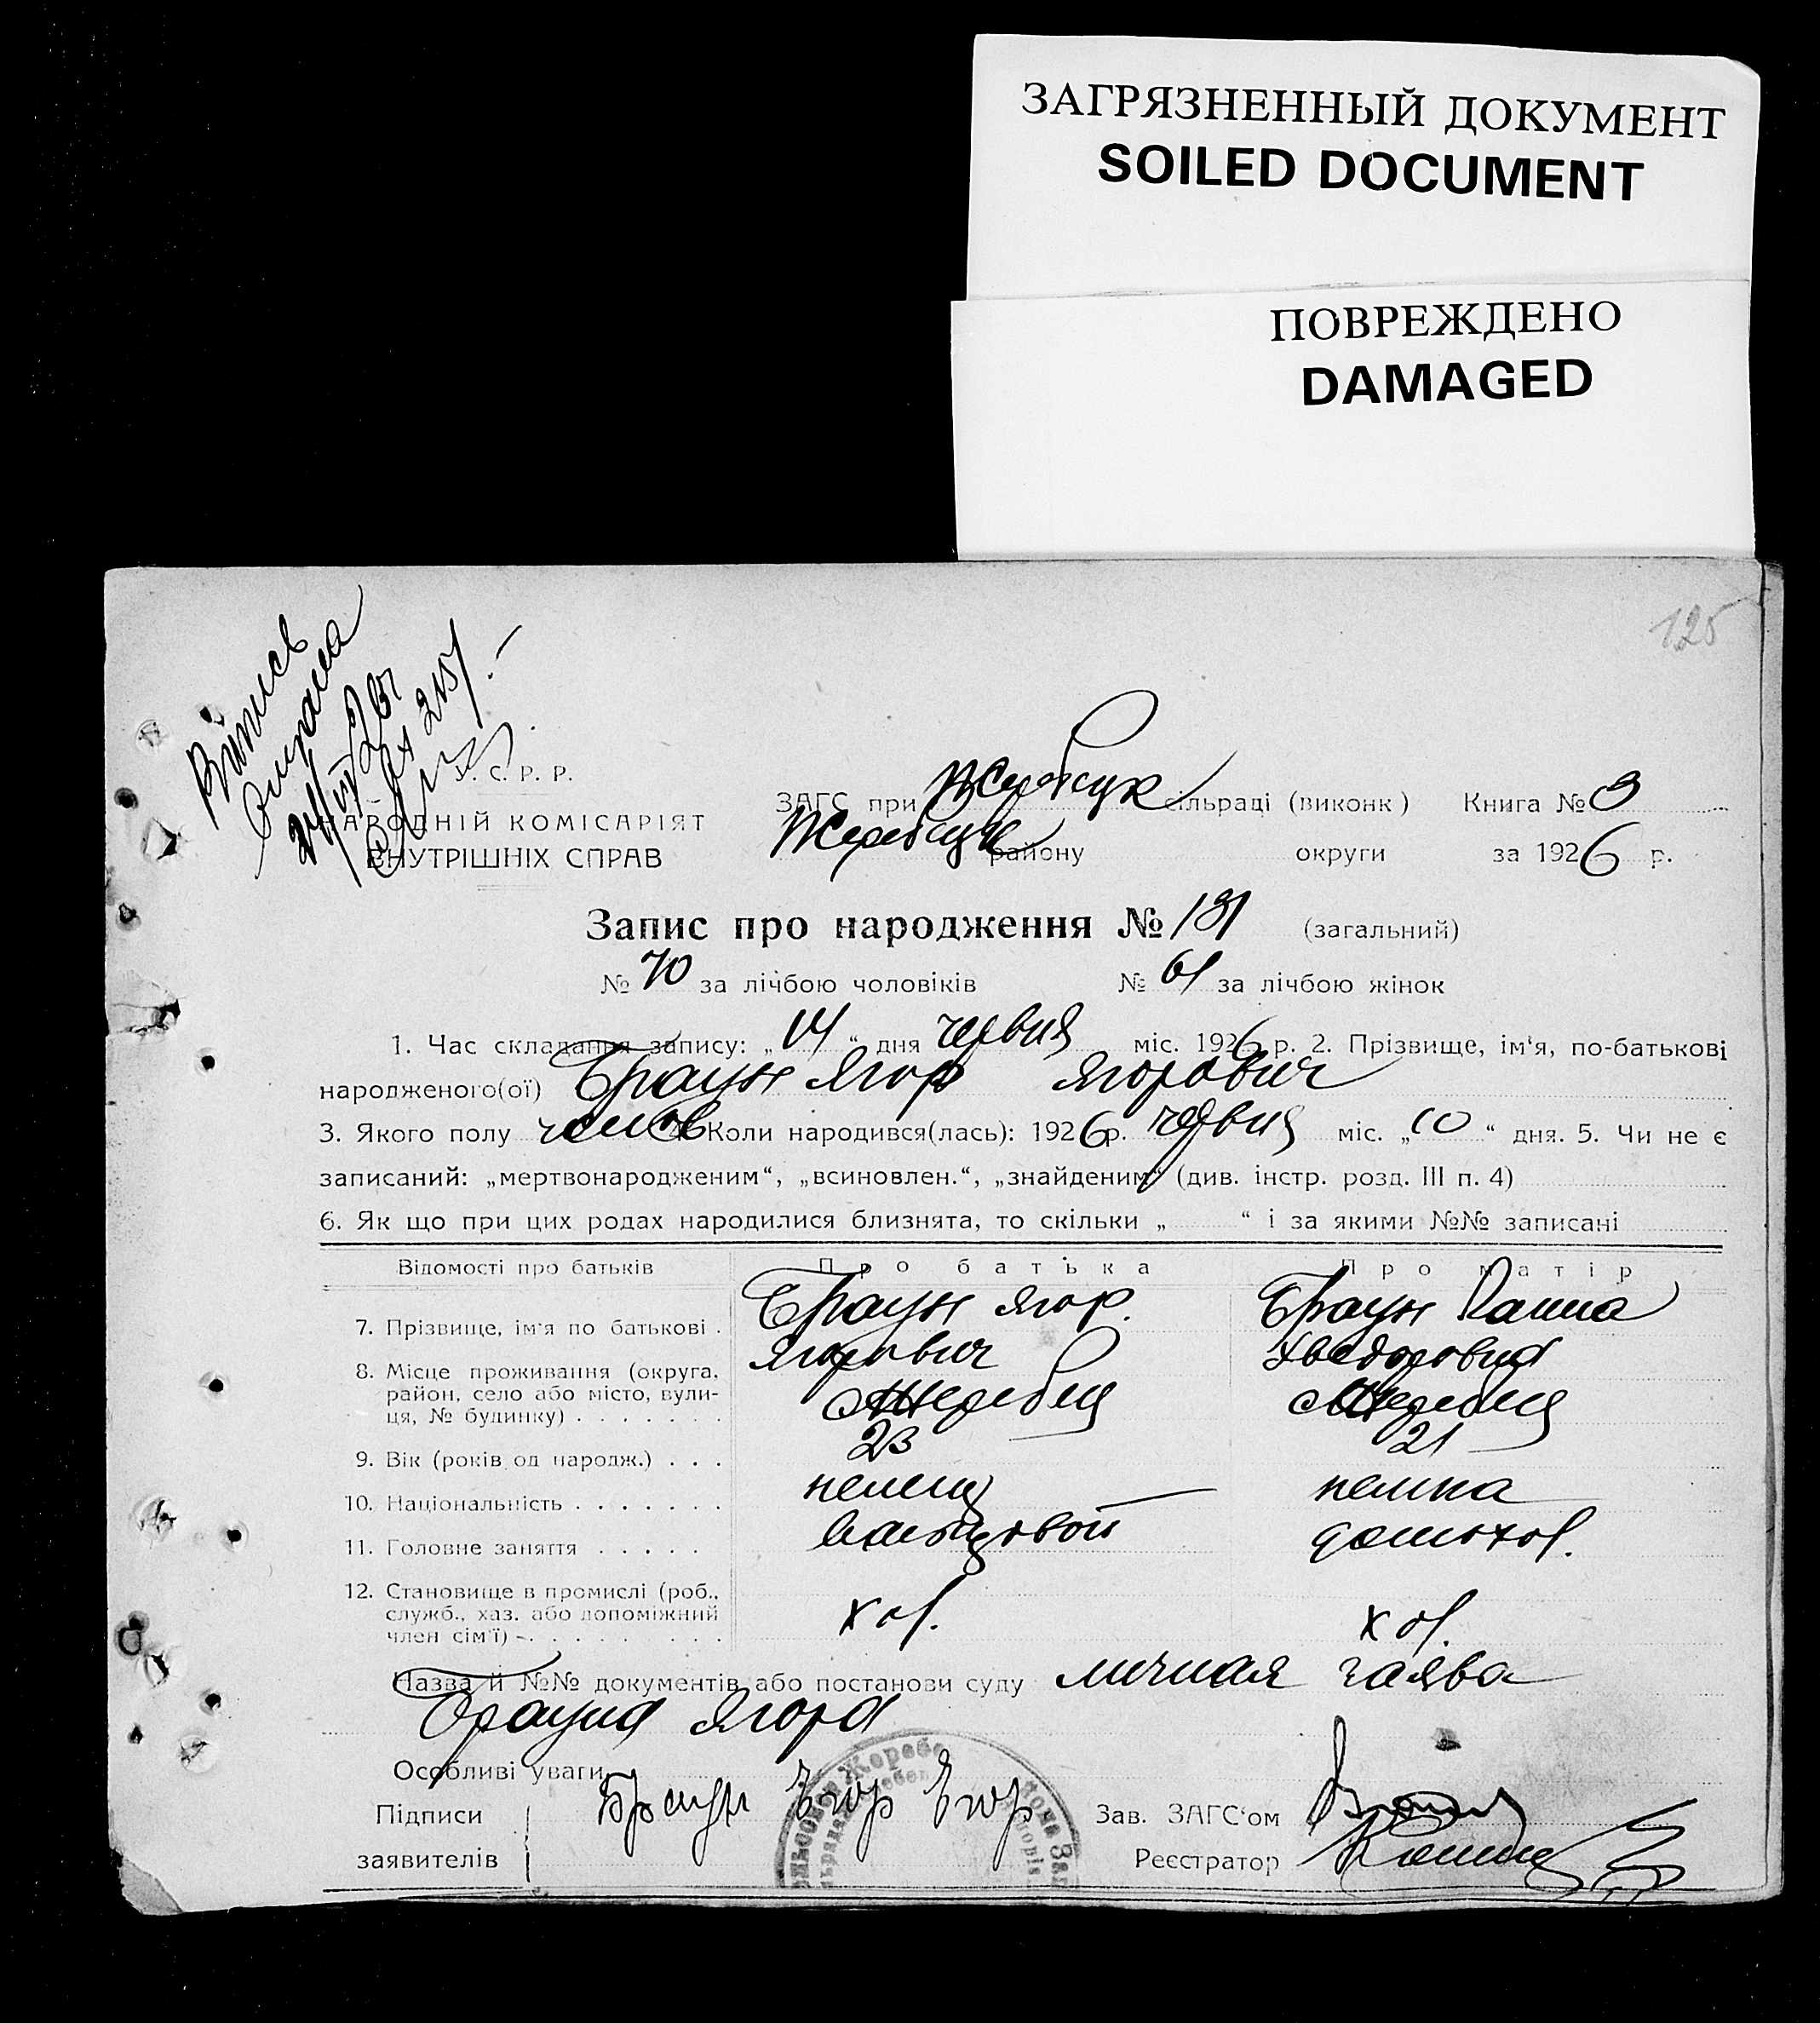 ЗАГРЯЗНЕННЫЙ ДОКУМЕНТ
SOILED DOCUMENT
ПОВРЕЖДЕНО
DAMAGED
125
У. С. Р. Р.
НАРОДНІЙ КОМІСАРІЯТ
ВНУТРІШНІХ СПРАВ
ЗАГС при сільраді (виконк) Книга №
району округи за 1926 р.
Запис про народження № 131 (загальний)
№ 70 за лічбою чоловіків № 61 за лічбою жінок
1. Час складання запису: „14“ дня червня міс. 1926 р. 2. Прізвище, ім'я, по-батькові
народженого(ої) Браун Ягор Ягорович
3. Якого полу 4. Коли народився(лась): 1926 р. червня міс. „10“ дня. 5. Чи не є
записаний: „мертвонародженим“, „всиновлен.“, „знайденим“ (див. інстр. розд. III п. 4)
6. Як що при цих родах народилися близнята, то скільки „ “ і за якими №№ записані
Відомості про батьків Про батька Про матір
7. Прізвище, ім'я по батькові . Браун Ягор. Ягорович Браун Ганна Хведоровна
8. Місце проживання (округа, район, село або місто, вулиця, № будинку) . . . . . . .
9. Вік (років од народж.) . . . 23 21
10. Національність . . . . . . . немец немка
11. Головне заняття . . . . . домохоз.
12. Становище в промислі (роб., служб., хаз. або допоміжний член сім'ї) – . . . . . . . . хоз. хоз.
Назва й №№ документів або постанови суду личная заява
Брауна Ягора
Особливі уваги
Підписи
заявителів
Браун Егор Егор
Зав. ЗАГС'ом
Реєстратор